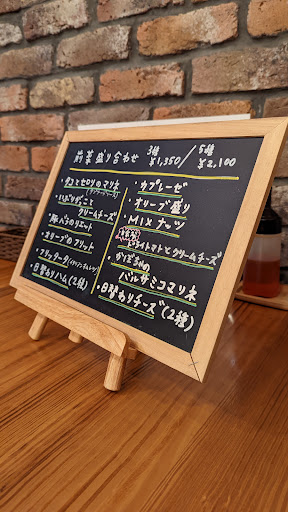 前菜盛り合わせ 3種 ¥1,350 / 5種 ¥2,100
・タコとセロリのマリネ
・いぶりがっこと
クリームチーズ
・豚バラのリエット
・オリーブのフリット
・フリッタータ
・日替わりハム(2種)
・カプレーゼ
・オリーブ盛り
・MIXナッツ
ドライトマトとクリームチーズ
・かぼちゃの
バルサミコマリネ
・日替わりチーズ(2種)